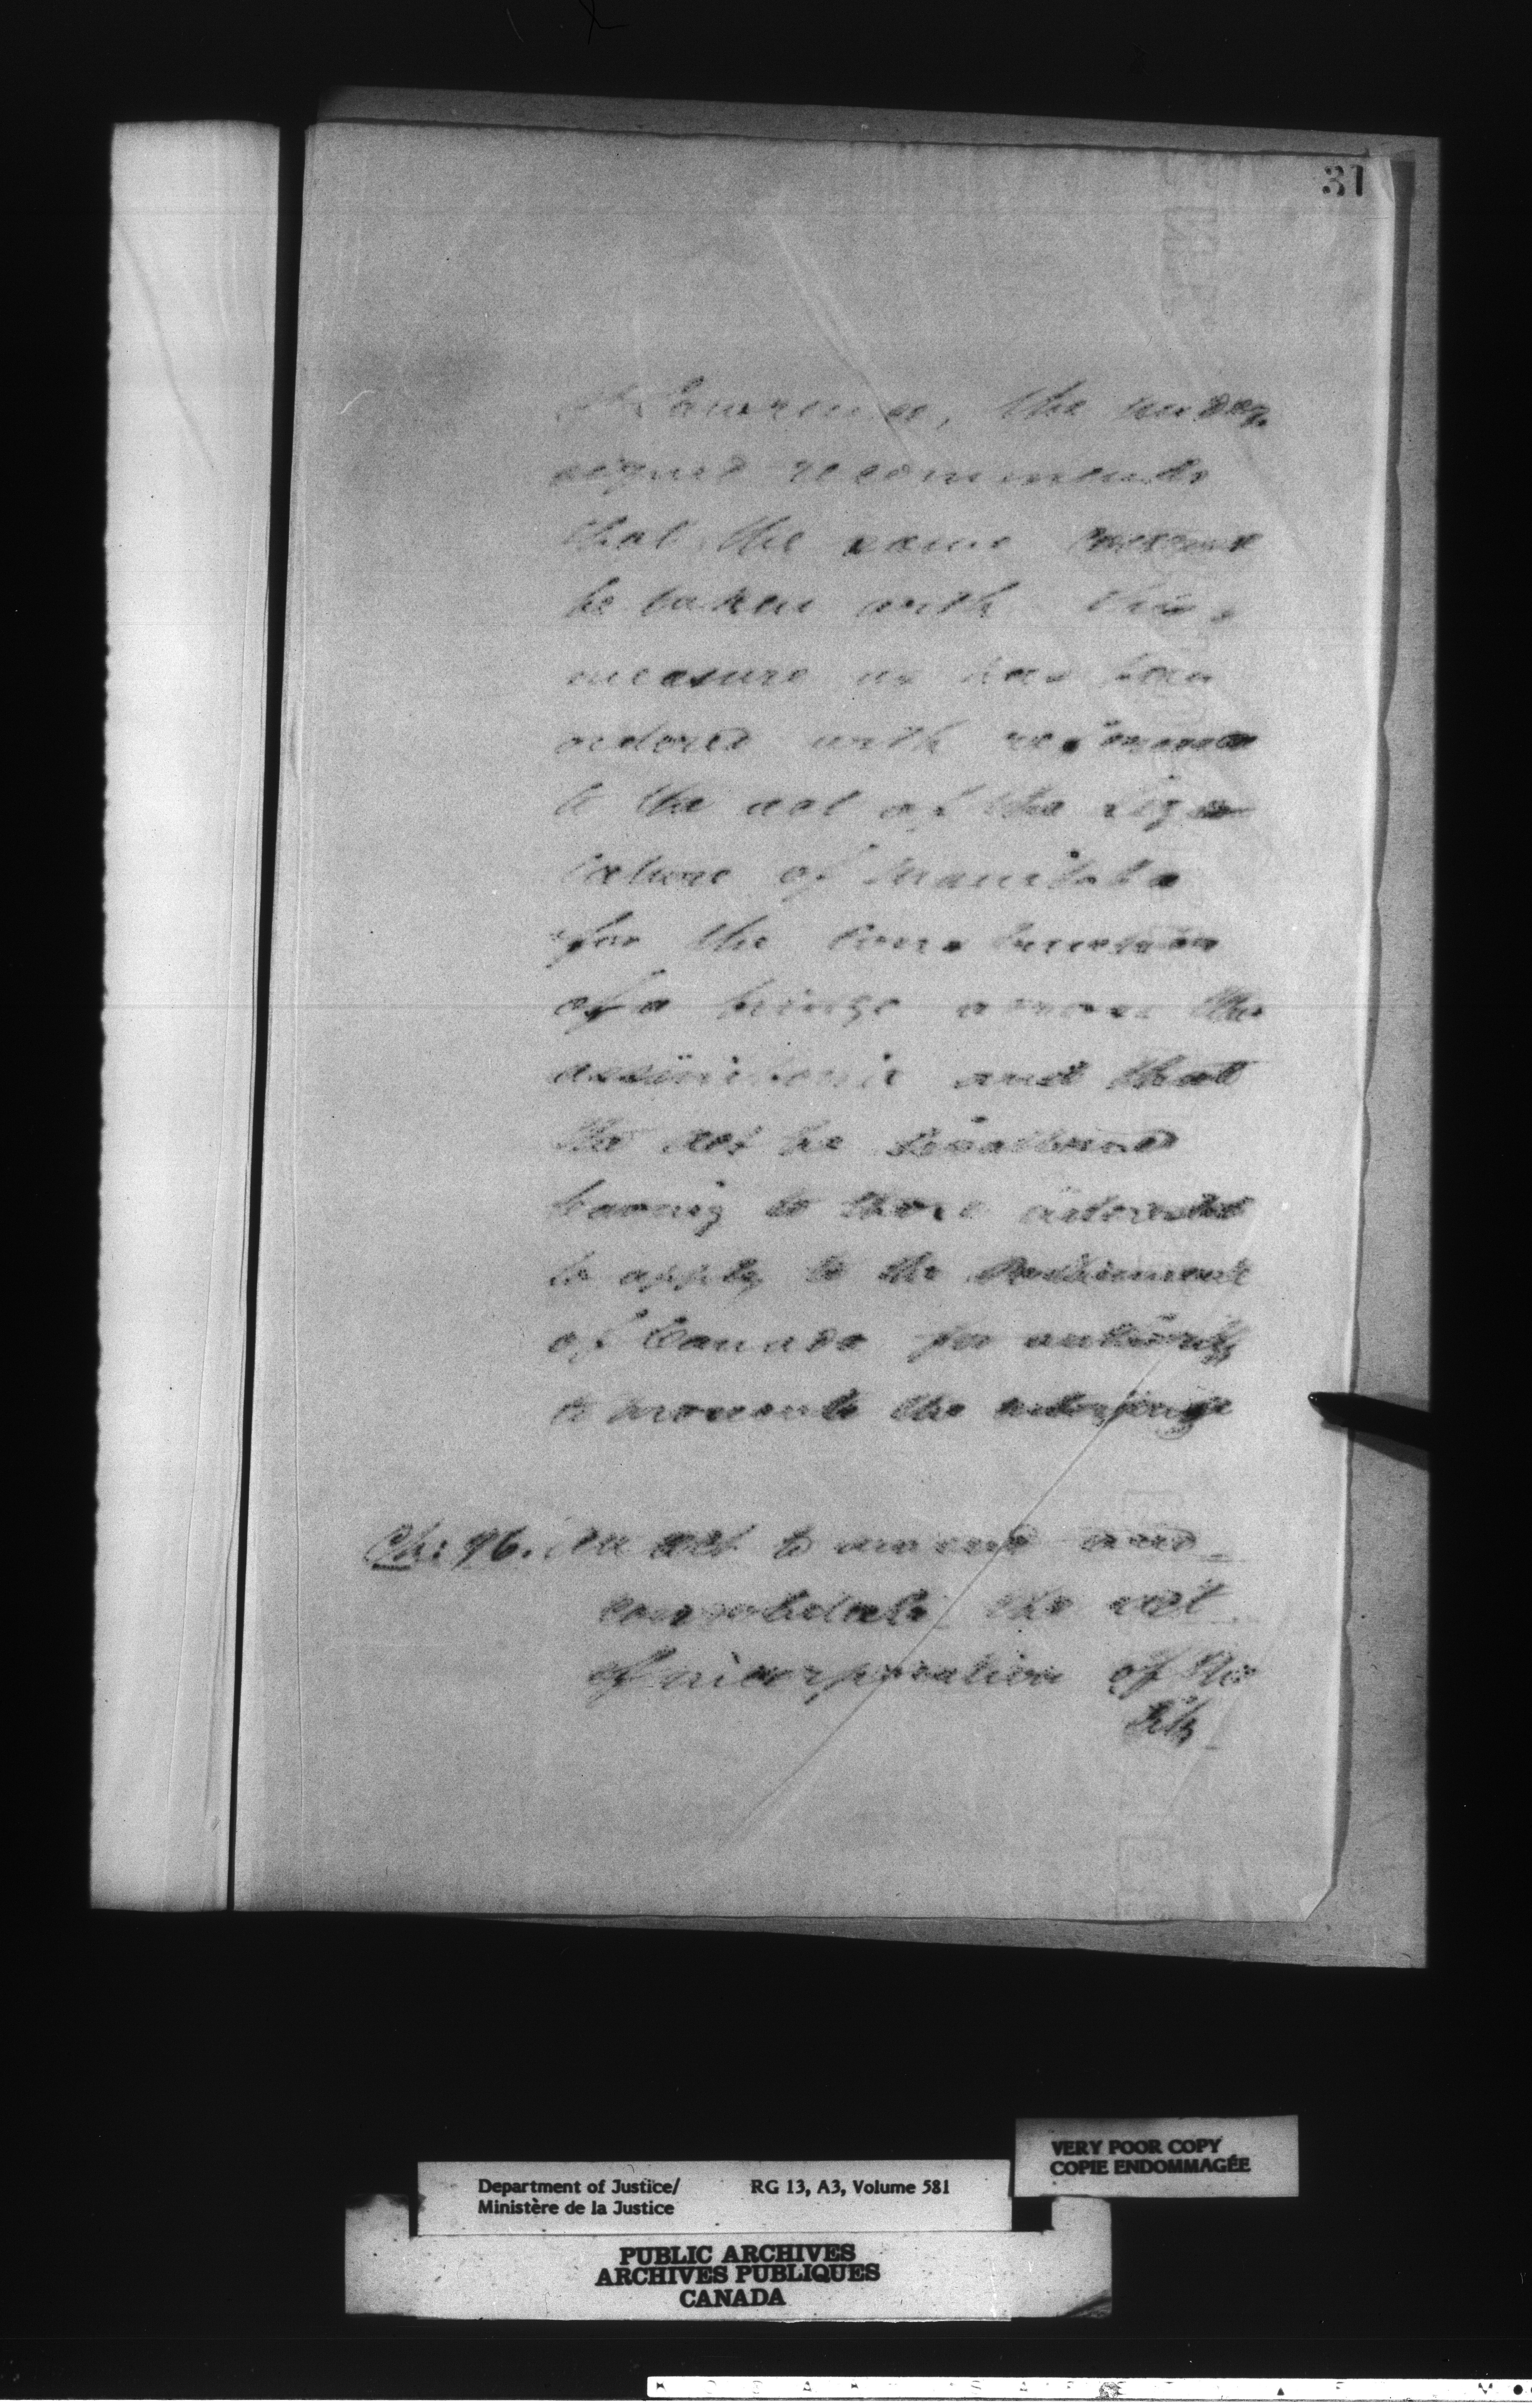 31
St Lawrence, the under
signed recommends
that the same course
be taken with this
measure as has been
ordered with reference
to the act of the Legis
lature of Manitoba
for the construction
of a bridge across the
assiniboine and that
the act be disallowed
leaving to those interested
to apply to the Parliament
of Canada for authority
to the enterprise
Ch: 96. An act to amend and
consolidate the act
of incorporation of the
City
VERY POOR COPY
COPIE ENDOMMAGÉE
Department of Justice/ RG 13, A3, Volume 581
Ministère de la Justice
PUBLIC ARCHIVES
ARCHIVES PUBLIQUES
CANADA